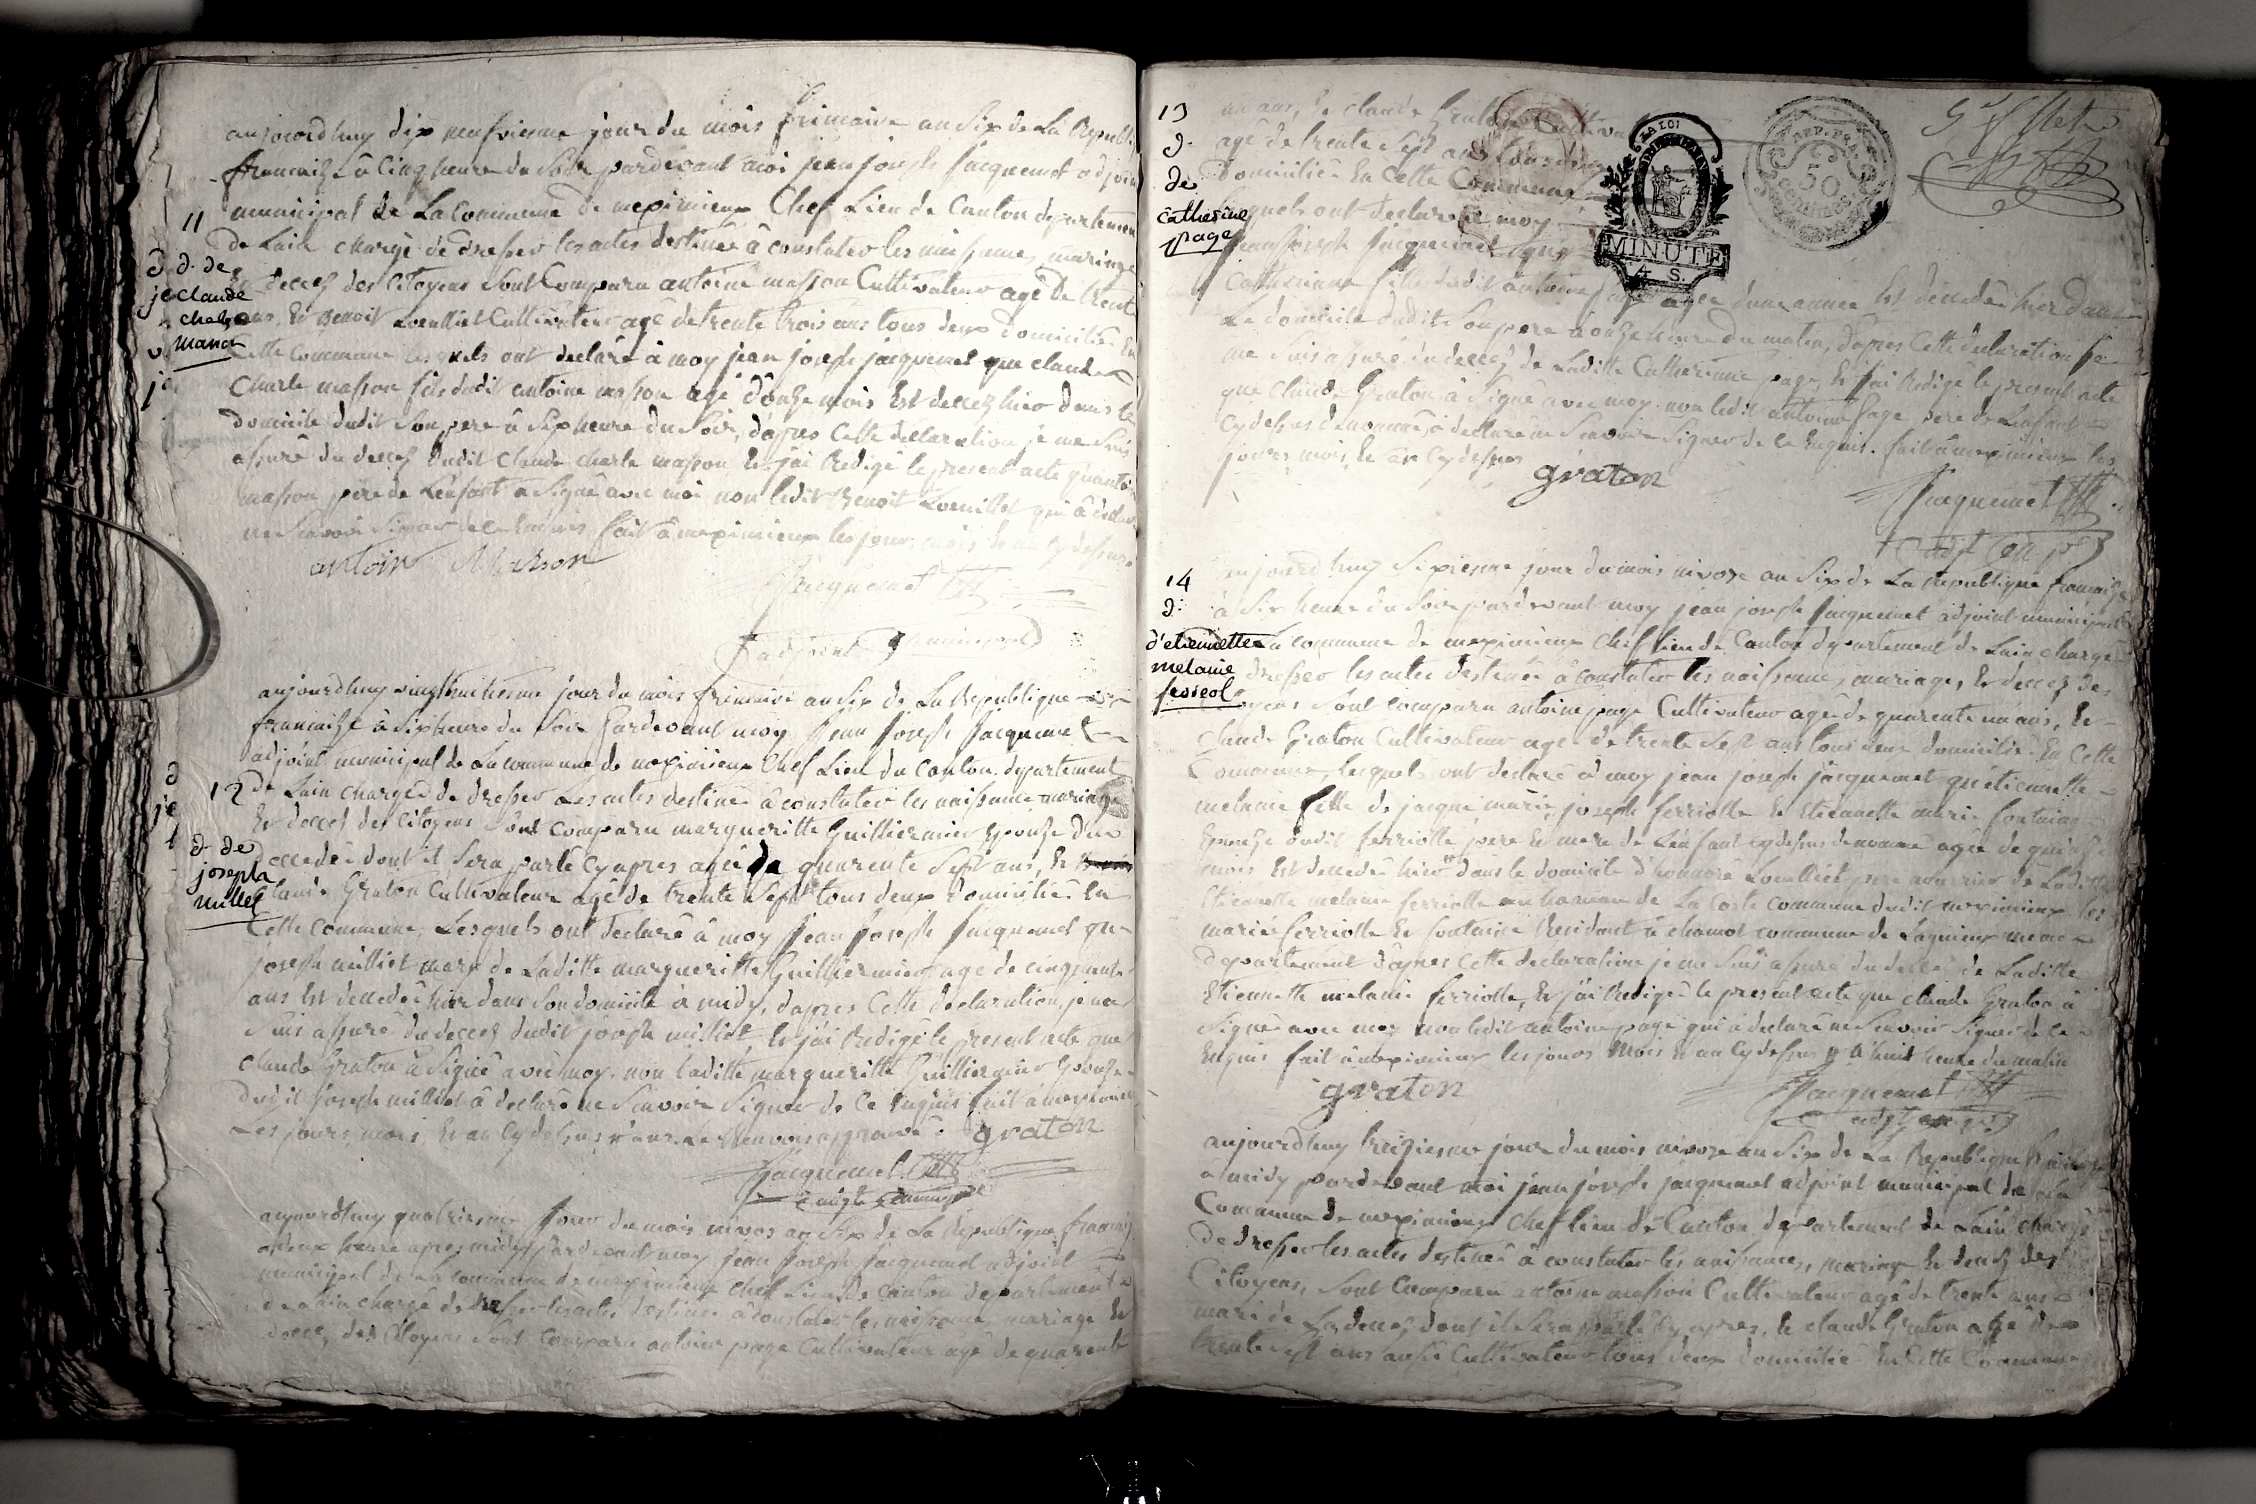 aujourdhuy dix neufviesme jour du mois frimaire an Six de La Republi
francaize à Cinq heure du Soir pardevant moi jean joseph jacquemet adjoin
municipal de La Commune de meximieux Chef Lieu de Canton departemen
11
de Lain chargé de dresser les actes destinée à constater les naissance, mariage
d. de
claude
charle
Masson
decez des Citoyens Sont Comparu antoine masson Cultivateur agé de trente
ans, Et Benoit Loeuilliet Cultivateur agé de trente trois ans tous deux domicilié En
Cette Commune lesquels ont declaré à moy jean joseph jacquemet que claude
Charle masson fils dudit antoine masson agé d'onze mois Est decez hier dans le
domicile dudit Son pere à Six heure du Soir, d'apres Cette declaration je me Suis
assuré du decez dudit Claude charle masson Et j'ai Redigé le present acte qu'antoi
masson pere de L'enfant a Signé avec moi non ledit Benoit Loeuilliet qui à declar
ne Scavoir Signer de ce Enquis fait à meximieux les jour, mois Et an Cy dessus.
antoine Masson
Jacquemet
adjoint municipal
aujourdhuy vingthuitiesme jour du mois frimaire an Six de La Republique
francaize à Six heure du Soir Pardevant moy Jean Joseph Jacquemet
adjoint municipal de La commune de meximieux Chef Lieu du Canton departement
12
de Lain chargé de dresser Les actes destinée à constater les naissance mariage
Et decez des Citoyens Sont Comparu margueritte Guilliermier Epouze du
d. de
joseph
millet
decedé dont il Sera parlé Cy apres agée de quarente Sept ans, Et
Claude Graton Cultivateur agé de trente Sept tous deux domicilié En
Cette Commune, Lesquels ont declaré à moy Jean Joseph Jacquemet que
joseph milliet mary de Laditte margueritte Guilliermier agé de cinquante
ans Est decedé hier dans Son domicile à midy, d'apres Cette declaration, je me
Suis assuré du decez dudit joseph milliet Et j'ai Redigé le present acte que
Claude Graton à Signé avec moy. non laditte margueritte Guilliermier Epouze
dudit Joseph milliet à declaré ne Scavoir Signer de Ce Enquis fait à meximieux
Les jours, mois, Et an Cy dessus Renvois approuvé. graton
Jacquemet
aujourdhuy quatriesme Jour du mois nivos an Six de La Republique francaiz
à deux heure apres midy Pardevant moy Jean Joseph Jacquemet adjoint
municipal de La commune de meximieux chef Lieu De Canton departement
de Lain chargé de dresser les actes destinée à constater les naissance, mariage Et
decez des Citoyens Sont Comparu antoine page Cultivateur agé de quarente
13
d.
de
catherine
page
un ans, Et Claude Graton Cultivateur
agé de trente Sept ans tous deux
domicilié En Cette Commune
lesquels ont declaré à moy
Jean Joseph Jacquemet que
Catherinne fille dudit antoine page agée d'une année Est decedée hier dans
Le domicile dudit Son pere à onze heure du matin, d'apres Cette declaration je
me Suis assuré du decez de Laditte Catherinne page, Et j'ai Redigé le present acte
que Claude Graton à Signé avec moy. non ledit antoine Page pere de L'enfant
Cy dessus denommé, à declaré ne Scavoir Signer de Ce Enquis. fait à meximieux les
jours, mois, Et an Cy dessus
graton
Jacquemet
LA LOI
MINUTE
4 S.
REP. FRA.
50
centimes
14
d.
d'etiennette
melanie
feriol
aujourdhuy Sixiesme jour du mois nivoze an Six de La Republique francaize
à Six heure du Soir pardevant moy jean joseph jacquemet adjoint municipal
de La commune de meximieux Chef Lieu de Canton departement de Lain chargé
de dresser les actes destinée à constater les naissance, mariage, Et decez des
Citoyens Sont Comparu antoine page Cultivateur agé de quarente un ans, Et
Claude Graton Cultivateur agé de trente Sept ans tous deux domicilié En Cette
Commune, lesquels ont declaré à moy jean joseph jacquemet qu'etiennette
melanie fille de jacque marie joseph ferriolle Et Etiennette marie fontaine
Epouze dudit ferriolle pere Et mere de L'enfant cy dessus denommé agée de quinze
mois Est decedée hier dans le domicile d'honnoré Loeuilliet pere nourrier de Laditte
Etiennette melanie ferriolle au hameau de La Coste Commune dudit meximieux les
mariés ferriolle Et fontaine Residant à chamot commune de Lagnieu meme
departement d'apres Cette declaration je me Suis assuré du decez de Laditte
Etiennette melanie ferriolle, Et j'ai Redigé le present acte que claude Graton à
Signé avec moy non ledit antoine page qui à declaré ne Scavoir Signer de Ce
Enquis fait à meximieux les jours Mois Et an Cy dessus à huit heure du matin
graton
Jacquemet
aujourdhuy treiziesme jour du mois nivoze an Six de La Republique francaize
à midy pardevant moi jean joseph jacquemet adjoint municipal de La
Commune de meximieux Chef lieu de Canton departement de Lain chargé
de dresser les actes destinée à constater les naissances, mariage Et decez des
Citoyens, Sont Comparu antoine masson Cultivateur agé de trente ans
mari de La decez dont il Sera parlé Cy apres, Et claude Graton agé de
trente Sept ans aussi Cultivateur tous deux domicilié En Cette Commune